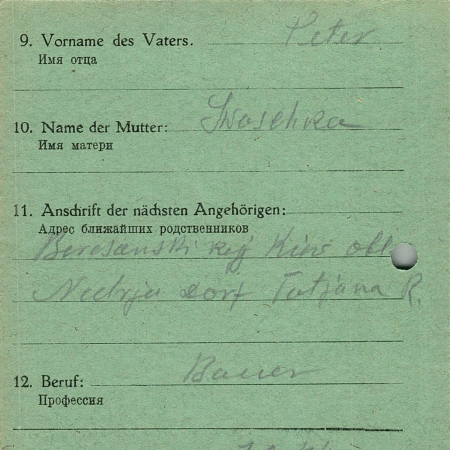 9. Vorname des Vaters. Peter
Имя отца
10. Name der Mutter: Iwaschka
Имя матери
11. Anschrift der nächsten Angehörigen:
Адрес ближайших родственников
Beresanski raj Kiew obl
dorf Tatjana R.
12. Beruf: Bauer
Профессия